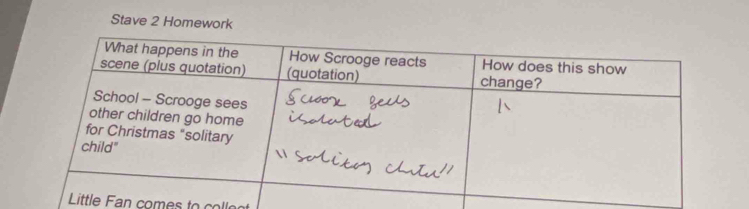 Stave 2 Homework
What happens in the scene (plus quotation)
How Scrooge reacts (quotation)
How does this show change?
School – Scrooge sees
other children go home
for Christmas "solitary
child"
Scrooge feels
isolated
"solitary child"
Little Fan comes to collect